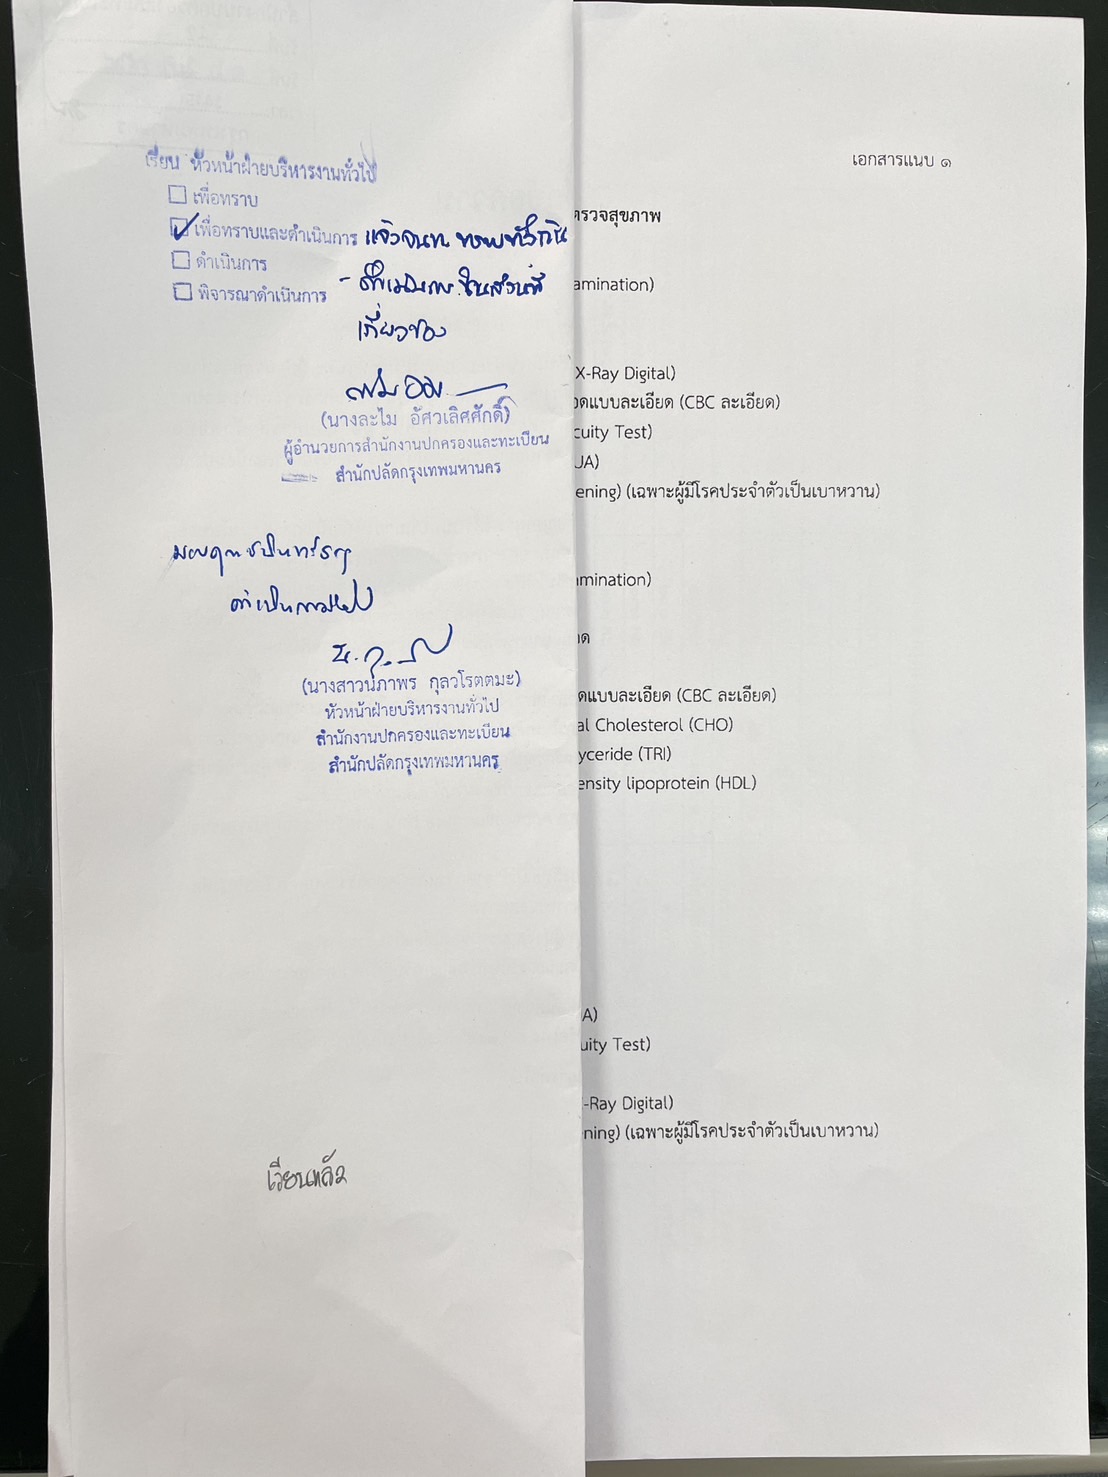 เรียน หัวหน้าฝ่ายบริหารงานทั่วไป
เพื่อทราบ
เพื่อทราบและดำเนินการ แจ้งจนท. ทราบทั่วกัน
ดำเนินการ
- ดำเนินการในส่วนที่
พิจารณาดำเนินการ
เกี่ยวข้อง
(นางละไม อัศวเลิศศักดิ์)
ผู้อำนวยการสำนักงานปกครองและทะเบียน
สำนักปลัดกรุงเทพมหานคร
ดำเนินการต่อไป
(นางสาวนภาพร กุลวโรตตมะ)
หัวหน้าฝ่ายบริหารงานทั่วไป
สำนักงานปกครองและทะเบียน
สำนักปลัดกรุงเทพมหานคร
เวียนแล้ว
เอกสารแนบ ๑
ตรวจสุขภาพ
amination)
X-Ray Digital)
อดแบบละเอียด (CBC ละเอียด)
cuity Test)
UA)
ening) (เฉพาะผู้มีโรคประจำตัวเป็นเบาหวาน)
amination)
อด
ดแบบละเอียด (CBC ละเอียด)
al Cholesterol (CHO)
yceride (TRI)
ensity lipoprotein (HDL)
A)
uity Test)
-Ray Digital)
ning) (เฉพาะผู้มีโรคประจำตัวเป็นเบาหวาน)